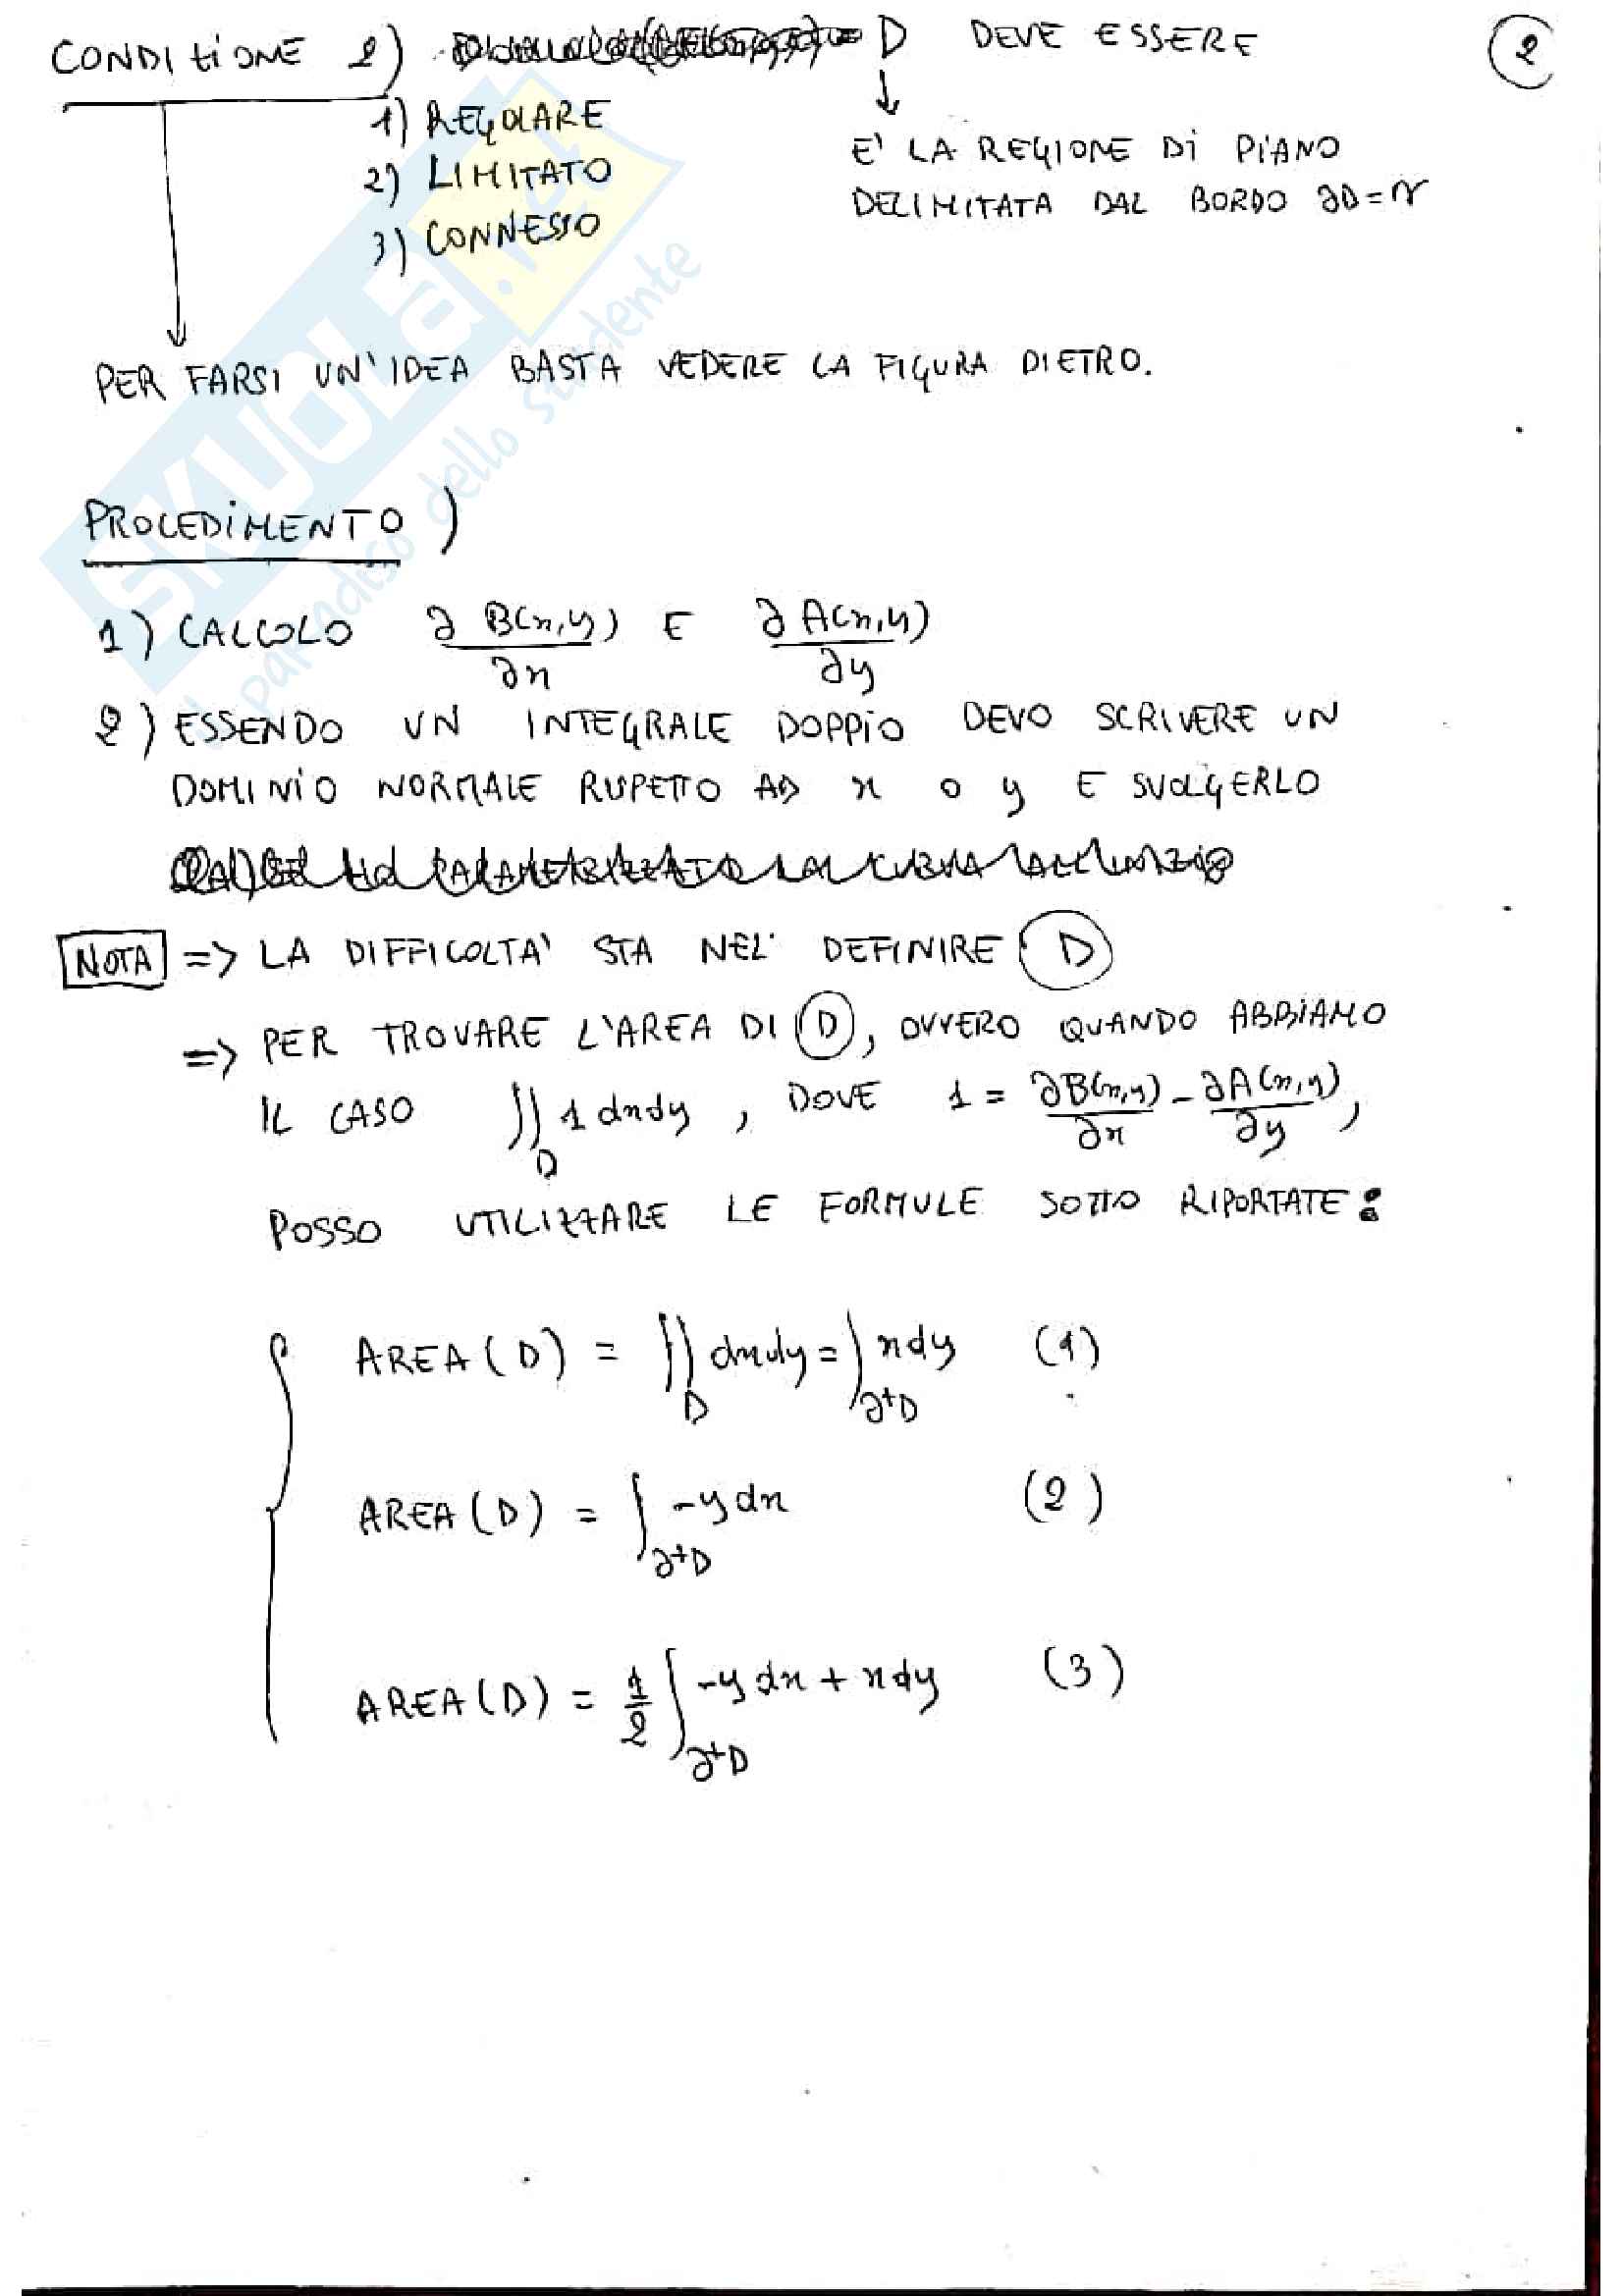 CONDIZIONE 2) D DEVE ESSERE
2
1) REGOLARE
2) LIMITATO
3) CONNESSO
E' LA REGIONE DI PIANO
DELIMITATA DAL BORDO ∂D=γ
PER FARSI UN'IDEA BASTA VEDERE LA FIGURA DIETRO.
PROCEDIMENTO)
1) CALCOLO ∂B(x,y)/∂x E ∂A(x,y)/∂y
2) ESSENDO UN INTEGRALE DOPPIO DEVO SCRIVERE UN
DOMINIO NORMALE RISPETTO AD x O y E SVOLGERLO
NOTA => LA DIFFICOLTA' STA NEL DEFINIRE D
=> PER TROVARE L'AREA DI D, OVVERO QUANDO ABBIAMO
IL CASO ∬_D 1 dxdy, DOVE 1 = ∂B(x,y)/∂x - ∂A(x,y)/∂y,
POSSO UTILIZZARE LE FORMULE SOTTO RIPORTATE:
AREA(D) = ∬_D dxdy = ∫_∂+D xdy (1)
AREA(D) = ∫_∂+D -ydx (2)
AREA(D) = 1/2 ∫_∂+D -ydx + xdy (3)
SKUOLA.net
il paradiso dello studente